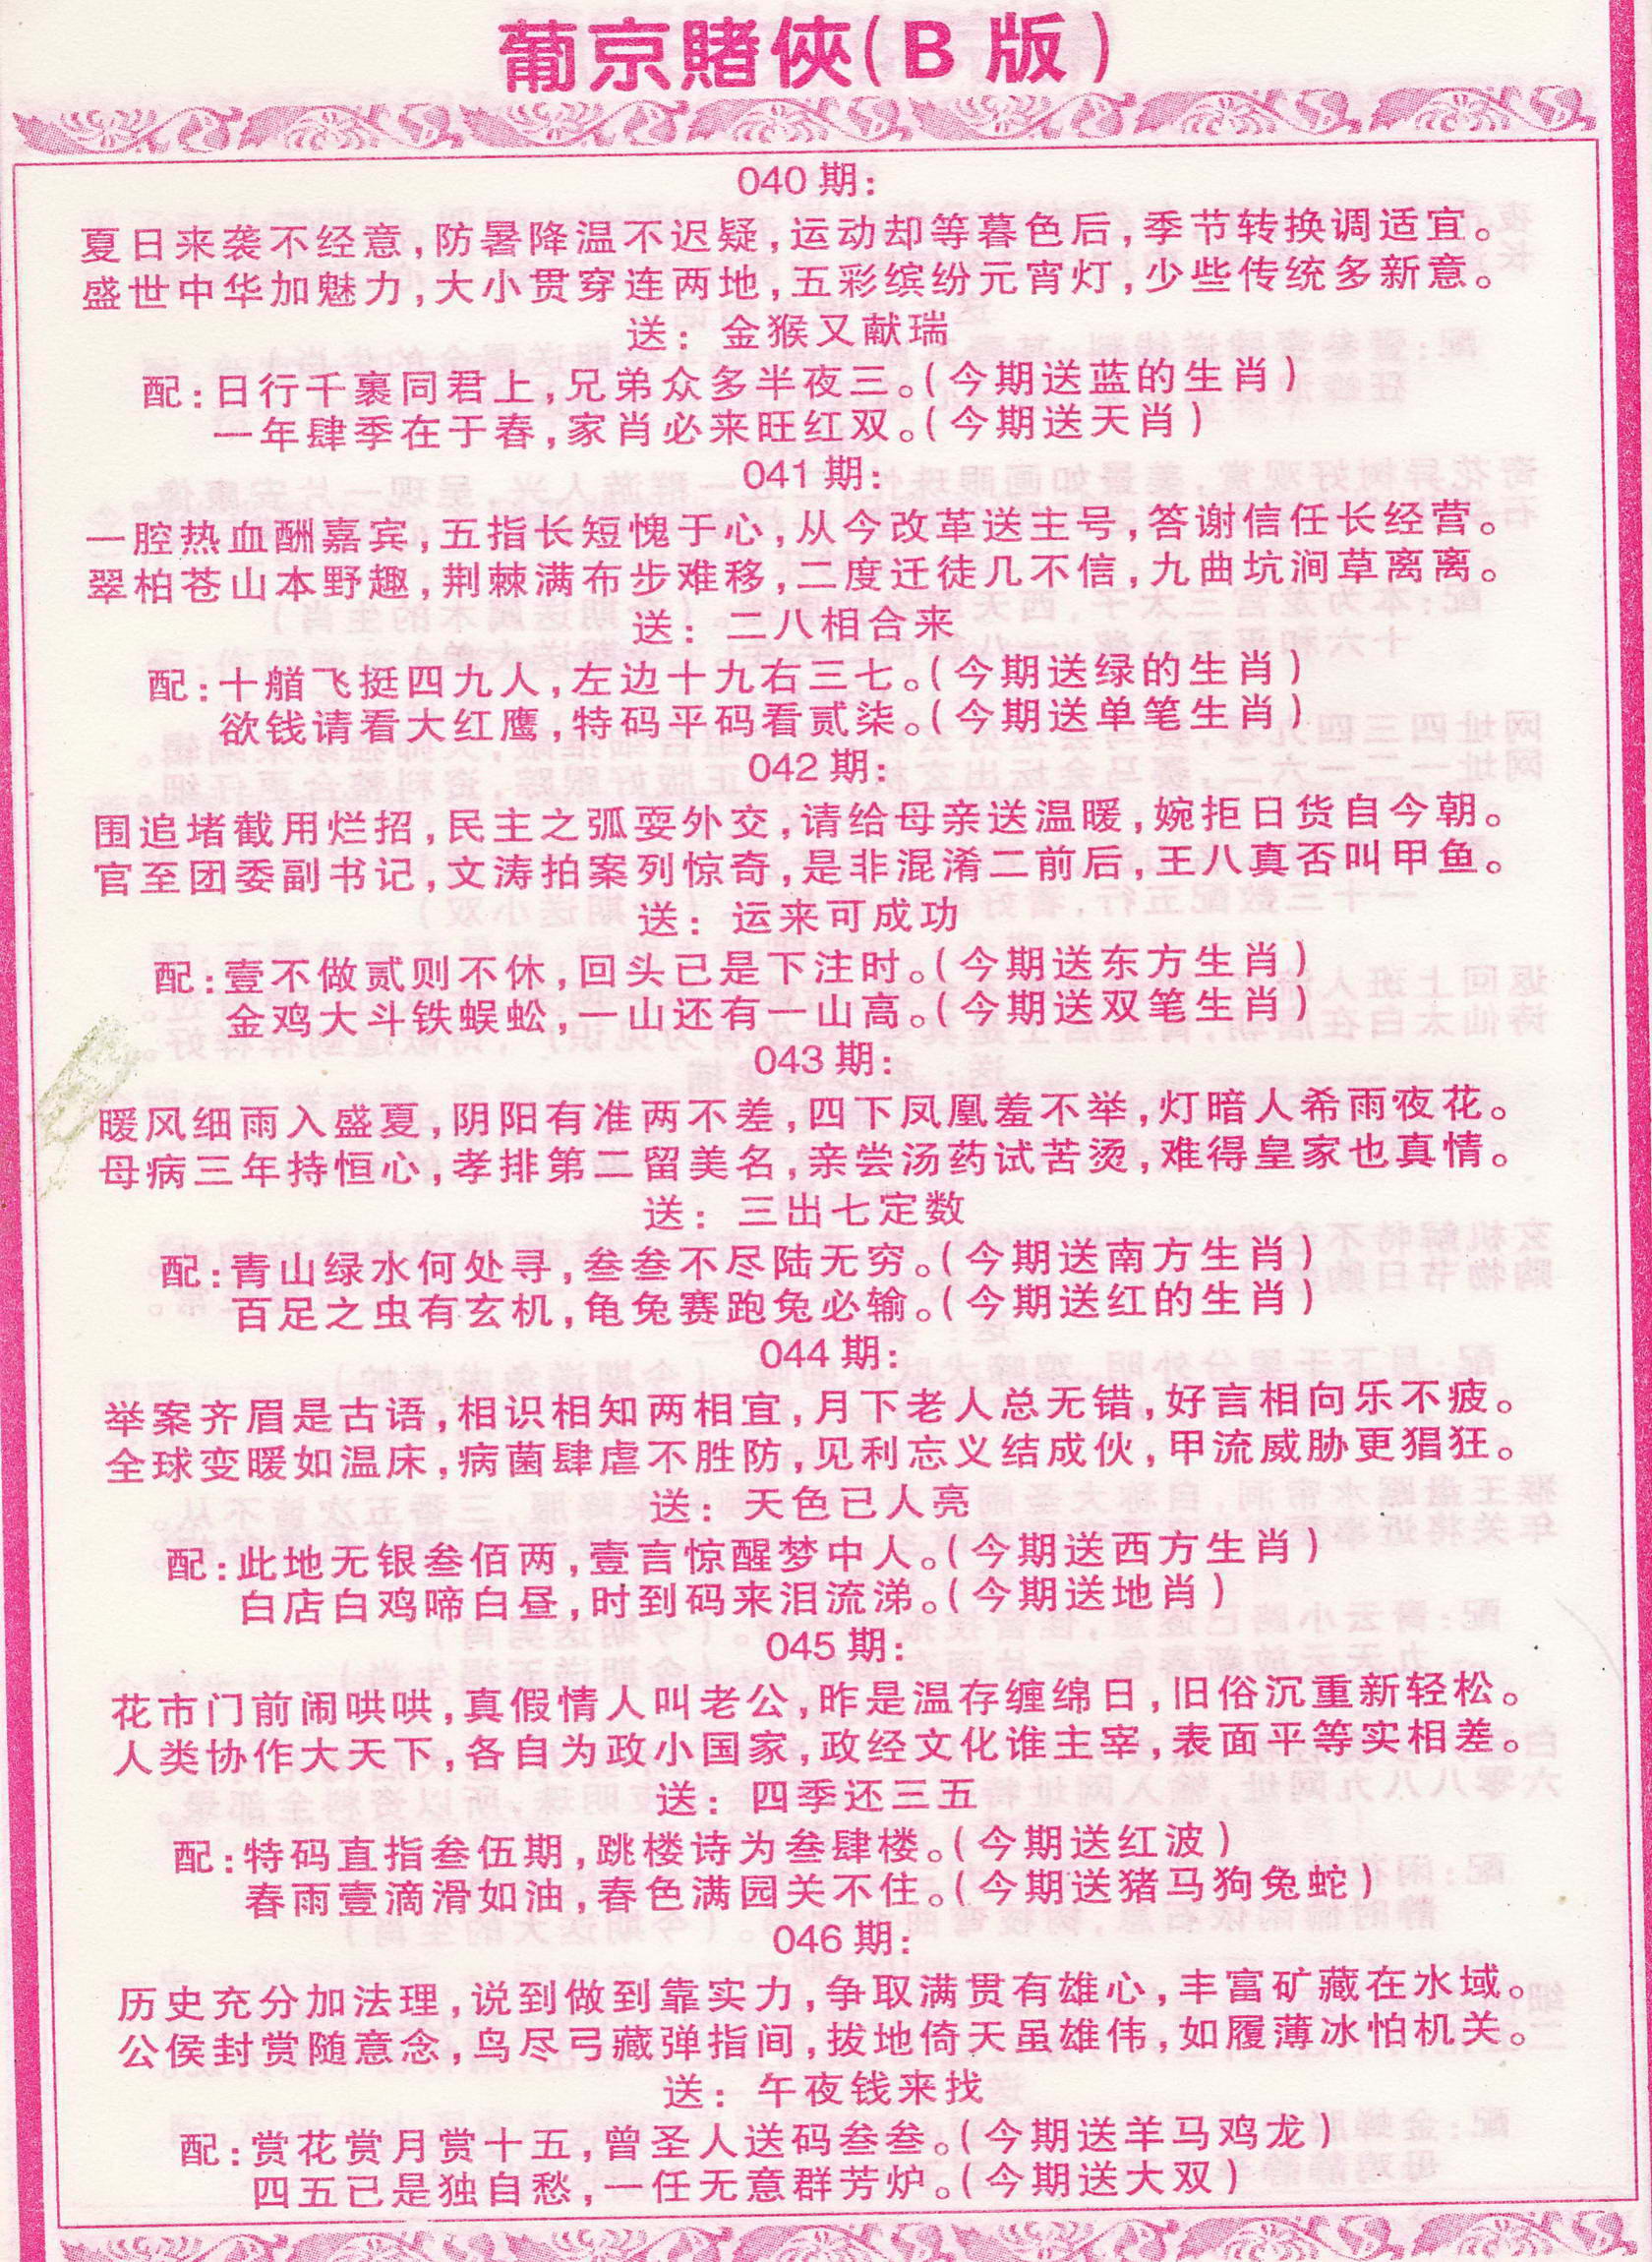 葡京賭俠(B 版)
040 期:
夏日来袭不经意,防暑降温不迟疑,运动却等暮色后,季节转换调适宜。
盛世中华加魅力,大小贯穿连两地,五彩缤纷元宵灯,少些传统多新意。
送: 金猴又献瑞
配:日行千裹同君上,兄弟众多半夜三。(今期送蓝的生肖)
一年肆季在于春,家肖必来旺红双。(今期送天肖)
041 期:
一腔热血酬嘉宾,五指长短愧于心,从今改革送主号,答谢信任长经营。
翠柏苍山本野趣,荆棘满布步难移,二度迁徒几不信,九曲坑涧草离离。
送: 二八相合来
配:十艏飞挺四九人,左边十九右三七。(今期送绿的生肖)
欲钱请看大红鹰,特码平码看贰柒。(今期送单笔生肖)
042 期:
围追堵截用烂招,民主之弧耍外交,请给母亲送温暖,婉拒日货自今朝。
官至团委副书记,文涛拍案列惊奇,是非混淆二前后,王八真否叫甲鱼。
送: 运来可成功
配:壹不做贰则不休,回头已是下注时。(今期送东方生肖)
金鸡大斗铁蜈蚣,一山还有一山高。(今期送双笔生肖)
043 期:
暖风细雨入盛夏,阴阳有准两不差,四下凤凰羞不举,灯暗人希雨夜花。
母病三年持恒心,孝排第二留美名,亲尝汤药试苦烫,难得皇家也真情。
送: 三出七定数
配:青山绿水何处寻,叁叁不尽陆无穷。(今期送南方生肖)
百足之虫有玄机,龟兔赛跑兔必输。(今期送红的生肖)
044 期:
举案齐眉是古语,相识相知两相宜,月下老人总无错,好言相向乐不疲。
全球变暖如温床,病菌肆虐不胜防,见利忘义结成伙,甲流威胁更猖狂。
送: 天色已人亮
配:此地无银叁佰两,壹言惊醒梦中人。(今期送西方生肖)
白店白鸡啼白昼,时到码来泪流涕。(今期送地肖)
045 期:
花市门前闹哄哄,真假情人叫老公,昨是温存缠绵日,旧俗沉重新轻松。
人类协作大天下,各自为政小国家,政经文化谁主宰,表面平等实相差。
送: 四季还三五
配:特码直指叁伍期,跳楼诗为叁肆楼。(今期送红波)
春雨壹滴滑如油,春色满园关不住。(今期送猪马狗兔蛇)
046 期:
历史充分加法理,说到做到靠实力,争取满贯有雄心,丰富矿藏在水域。
公侯封赏随意念,鸟尽弓藏弹指间,拔地倚天虽雄伟,如履薄冰怕机关。
送: 午夜钱来找
配:赏花赏月赏十五,曾圣人送码叁叁。(今期送羊马鸡龙)
四五已是独自愁,一任无意群芳炉。(今期送大双)